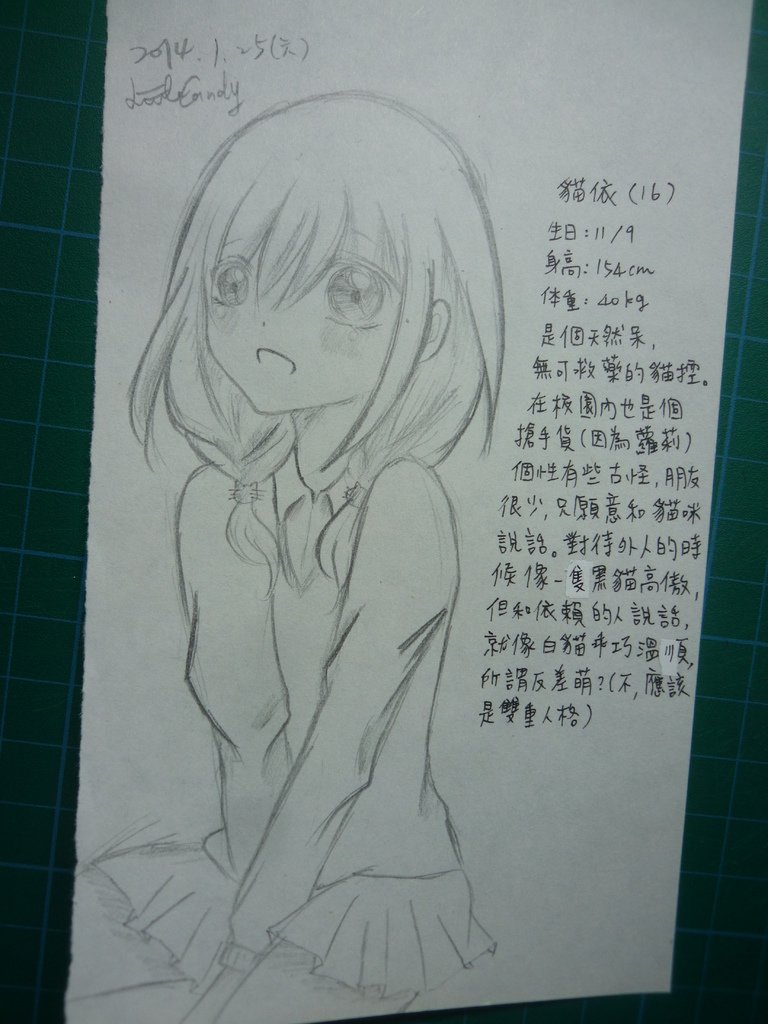 2014.1.25(六)
貓依(16)
生日:11/9
身高:154cm
体重:40kg
是個天然呆,
無可救藥的貓控。
在校園內也是個
搶手貨(因為蘿莉)
個性有些古怪,朋友
很少,只願意和貓咪
說話。對待外人的時
候像一隻黑貓高傲,
但和依賴的人說話,
就像白貓乖巧溫順,
所謂反差萌?(不,應該
是雙重人格)